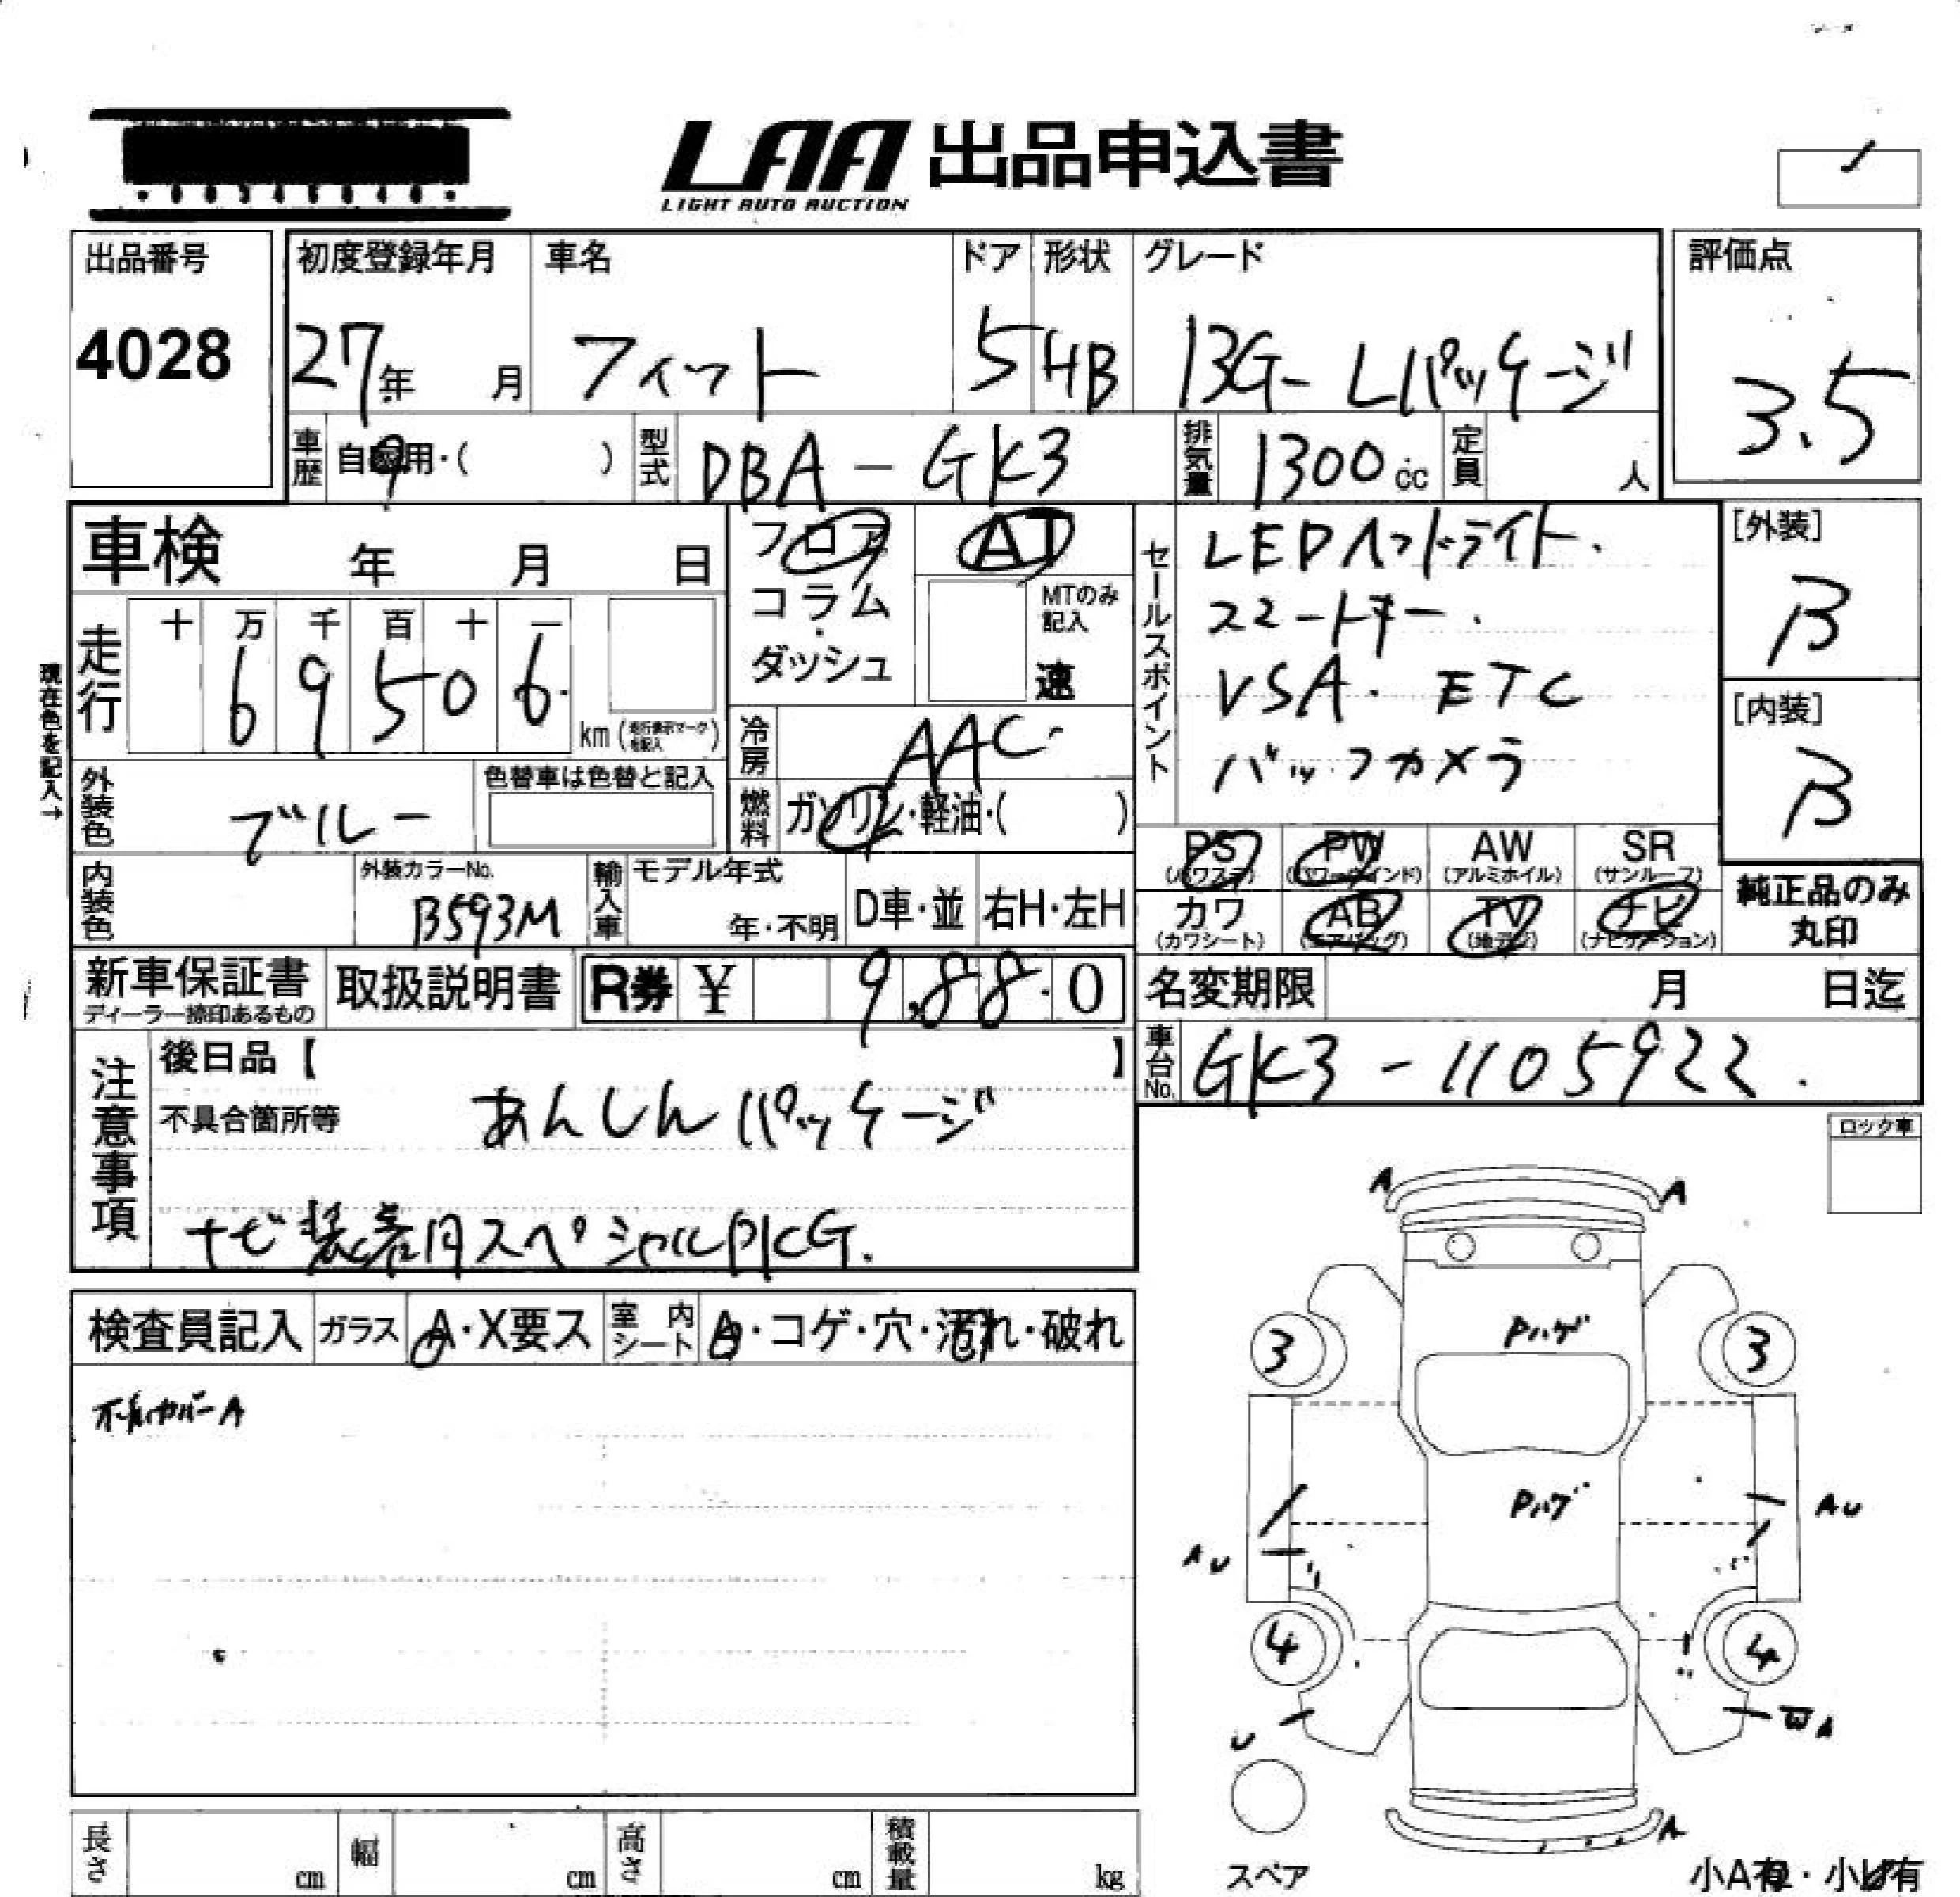 LAA 出品申込書
LIGHT AUTO AUCTION
出品番号 初度登録年月 車名 ドア 形状 グレード 評価点
4028 27年 月 フィット 5 HB 13G-Lパッケージ 3.5
車歴 自 用・( ) 型式 DBA-GK3 排気量 1300cc 定員 人
9
車検 年 月 日
フロア AT
コラム・ダッシュ
MTのみ記入
速
セールスポイント
LEDヘッドライト.
スマートキー.
VSA. ETC
バックカメラ
[外装]
B
[内装]
B
現在色を記入→
走行 十 万 千 百 十 一
69506.
km (走行表示マークを記入)
冷房 AAC.
外装色 ブルー 色替車は色替と記入
燃料 ガソリン・軽油・( )
PS PW AW SR
(パワステ) (パワーウインド) (アルミホイル) (サンルーフ)
カワ AB TV ナビ
(カワシート) (エアバッグ) (地デジ) (ナビゲーション)
純正品のみ
丸印
内装色 外装カラーNo. B593M
輸入車 モデル年式 年・不明 D車・並 右H・左H
新車保証書 取扱説明書 R券 ¥ 9,88.0
ディーラー捺印あるもの
名変期限 月 日迄
車台No. GK3-1105922.
注意事項
後日品【 】
不具合箇所等 あんしんパッケージ
ナビ装着用スペシャルPKG.
ロック車
検査員記入 ガラス A・X要ス 室内シート ・コゲ・穴・汚れ・破れ
カバーA
A A
Pハゲ
3 3
Pハゲ
AU
AU
4 4
U
WA
A
スペア
小A有・小U有
長さ cm 幅 cm 高さ cm 積載量 kg